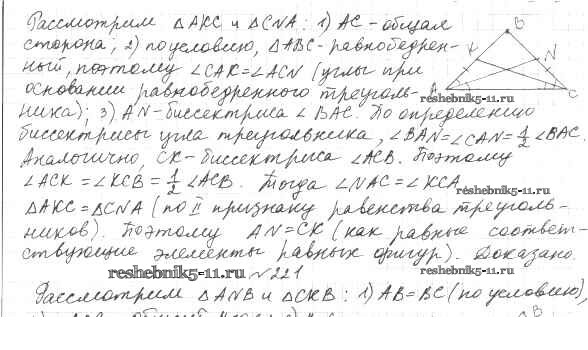 Рассмотрим △AKC и △CNA: 1) AC - общая
сторона; 2) по условию, △ABC - равнобедрен-
ный, поэтому ∠CAK=∠ACN (углы при
основании равнобедренного треуголь-
ника); 3) AN - биссектриса ∠BAC. По определению
биссектрисы угла треугольника, ∠BAN=∠CAN=1/2 ∠BAC.
Аналогично, CK - биссектриса ∠ACB. Поэтому
∠ACK=∠KCB=1/2 ∠ACB. Тогда ∠NAC=∠KCA
△AKC=△CNA (по II признаку равенства треуголь-
ников). Поэтому AN=CK (как равные соответ-
ствующие элементы равных фигур). Доказано.
№221
Рассмотрим △ANB и △CKB: 1) AB=BC (по условию),
B
N
A
C
reshebnik5-11.ru
reshebnik5-11.ru
reshebnik5-11.ru
B